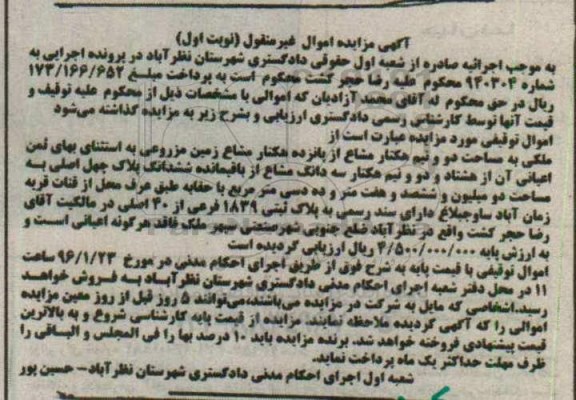 آگهی مزایده اموال غیرمنقول (نوبت اول)
به موجب اجرائیه صادره از شعبه اول حقوقی دادگستری شهرستان نظرآباد در پرونده اجرایی به
شماره ۹۲۰۳۰۴ محکوم علیه رضا حجر کشت محکوم است به پرداخت مبلغ ۱۷۳/۱۶۶/۶۵۲
ریال در حق محکوم له آقای محمد آزادیان که اموالی با مشخصات ذیل از محکوم علیه توقیف و
قیمت آنها توسط کارشناس رسمی دادگستری ارزیابی و بشرح زیر به مزایده گذاشته می‌شود
اموال توقیفی مورد مزایده عبارت است از
ملکی به مساحت دو و نیم هکتار مشاع از پانزده هکتار مشاع زمین مزروعی به استثنای بهای ثمن
اعیانی آن از هشتاد و دو و نیم هکتار سه دانگ مشاع از باقیمانده ششدانگ پلاک چهل اصلی به
مساحت دو میلیون و ششصد و هفت متر و ده دسی متر مربع با حقابه طبق عرف محل از قنات قریه
زمان آباد ساوجبلاغ دارای سند رسمی به پلاک ثبتی ۱۸۳۹ فرعی از ۴۰ اصلی در مالکیت آقای
رضا حجر کشت واقع در نظرآباد ضلع جنوبی شهرصنعتی سپهر ملک فاقد هرگونه اعیانی است و
به ارزش پایه ۴/۵۰۰/۰۰۰/۰۰۰ ریال ارزیابی گردیده است
اموال توقیفی با قیمت پایه به شرح فوق از طریق اجرای احکام مدنی در مورخ ۹۶/۱/۲۳ ساعت
۱۱ در محل دفتر شعبه اجرای احکام مدنی دادگستری شهرستان نظرآباد به فروش خواهد
رسید.اشخاصی که مایل به شرکت در مزایده می‌باشند،می‌توانند ۵ روز قبل از روز معین مزایده
اموالی را که آگهی گردیده ملاحظه نمایند. مزایده از قیمت پایه کارشناسی شروع و به بالاترین
قیمت پیشنهادی فروخته خواهد شد. برنده مزایده باید ۱۰ درصد بها را فی المجلس و الباقی را
ظرف مهلت حداکثر یک ماه پرداخت نماید.
شعبه اول اجرای احکام مدنی دادگستری شهرستان نظرآباد– حسین پور